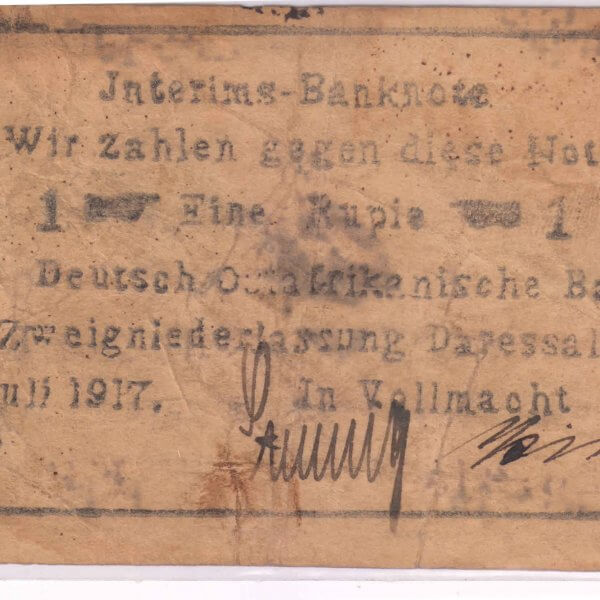 Interims-Banknote
Wir zahlen gegen diese Not
1 Eine Rupie 1
Deutsch Ostafrikanische Ba
Zweigniederlassung Daressal
uli 1917. In Vollmacht